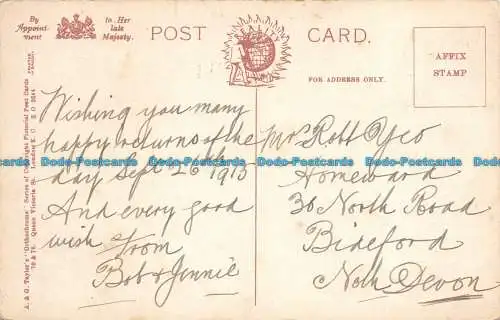 By Appointment
to Her late Majesty.
POST CARD.
REALITY
FOR ADDRESS ONLY.
AFFIX
STAMP
A. & G. Taylor's "Orthochrome" Series of Copyright Pictorial Post Cards
70 & 78, Queen Victoria St. London E.C.
Wishing you many
happy returns of the
day Sept 26 / 1913
And every good
wish from
Bob & Jennie
Mr Rott Yeo
Homeward
30 North Road
Bideford
Noth Devon
Dodo-Postcards Dodo-Postcards Dodo-Postcards Dodo-Postcards Dodo-Postcards